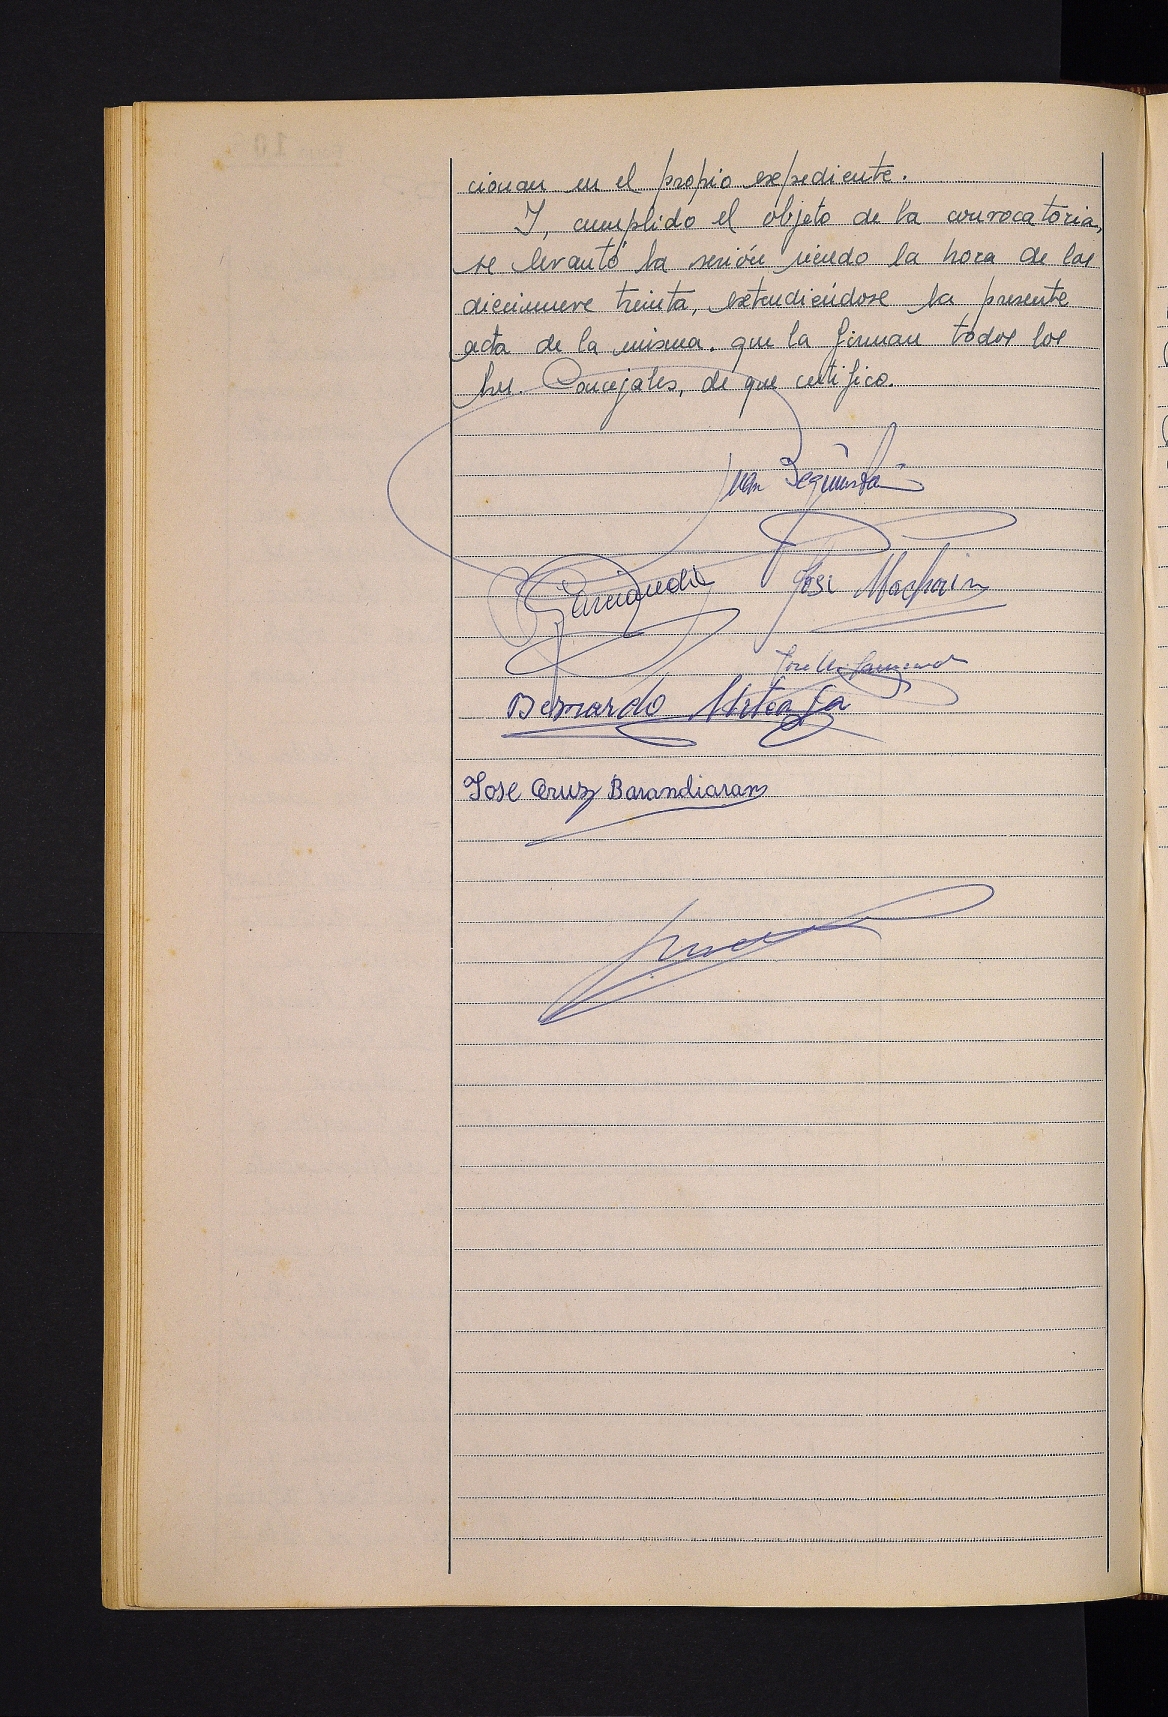 cionan en el propio expediente.
Y, cumplido el objeto de la convocatoria,
se levantó la sesión siendo la hora de las
diecinueve treinta, extendiéndose la presente
acta de la misma. que la firman todos los
Srs. Concejales, de que certifico.
Juan Beguiristain
José
Bernardo
Jose Cruz Barandiaran